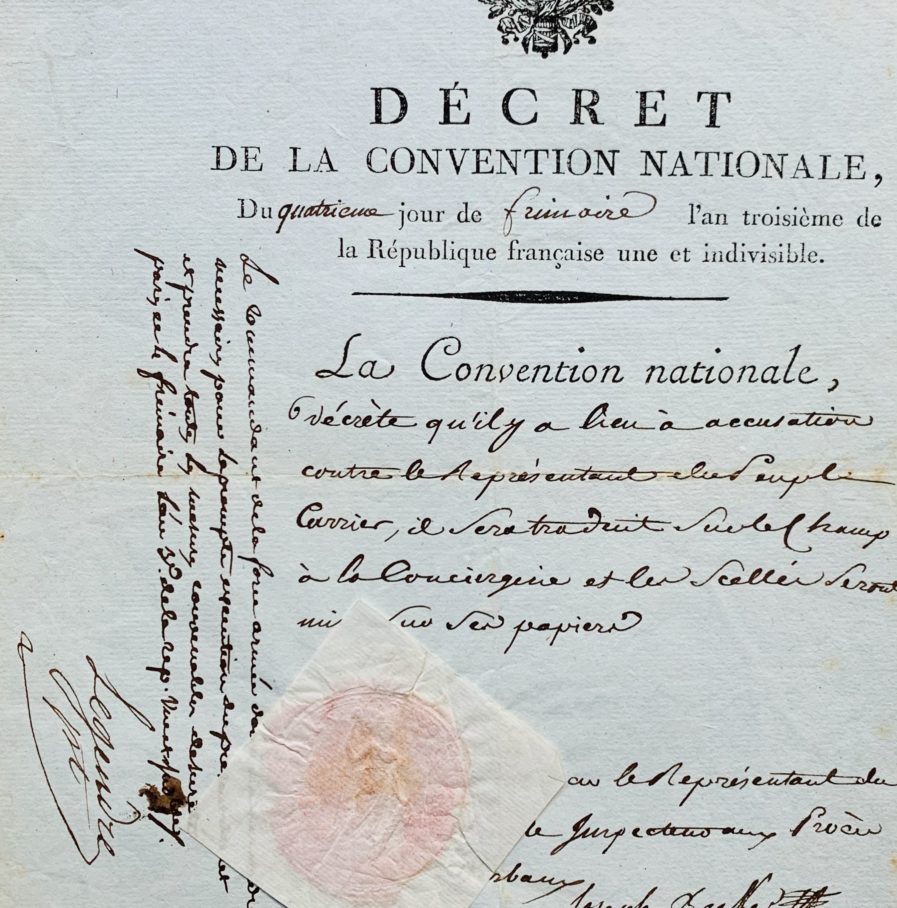 DÉCRET
DE LA CONVENTION NATIONALE,
Du quatrieme jour de frimaire l'an troisième de
la République française une et indivisible.
La Convention nationale,
décrète qu'il y a lieu à accusation
contre le Représentant du Peuple
Carrier, il sera traduit sur le Champ
à la Conciergerie et les scellés seront
mis sur ses papiers
le Représentant du
Inspecteur aux Procès
rbaux
Joseph
Le Commandant de la force armée
necessaires pour la prompte execution du
et prendre toutes les mesures convenables de sure
paris, ce 4 frimaire l'an 3e. de la rep. une et
Legendre